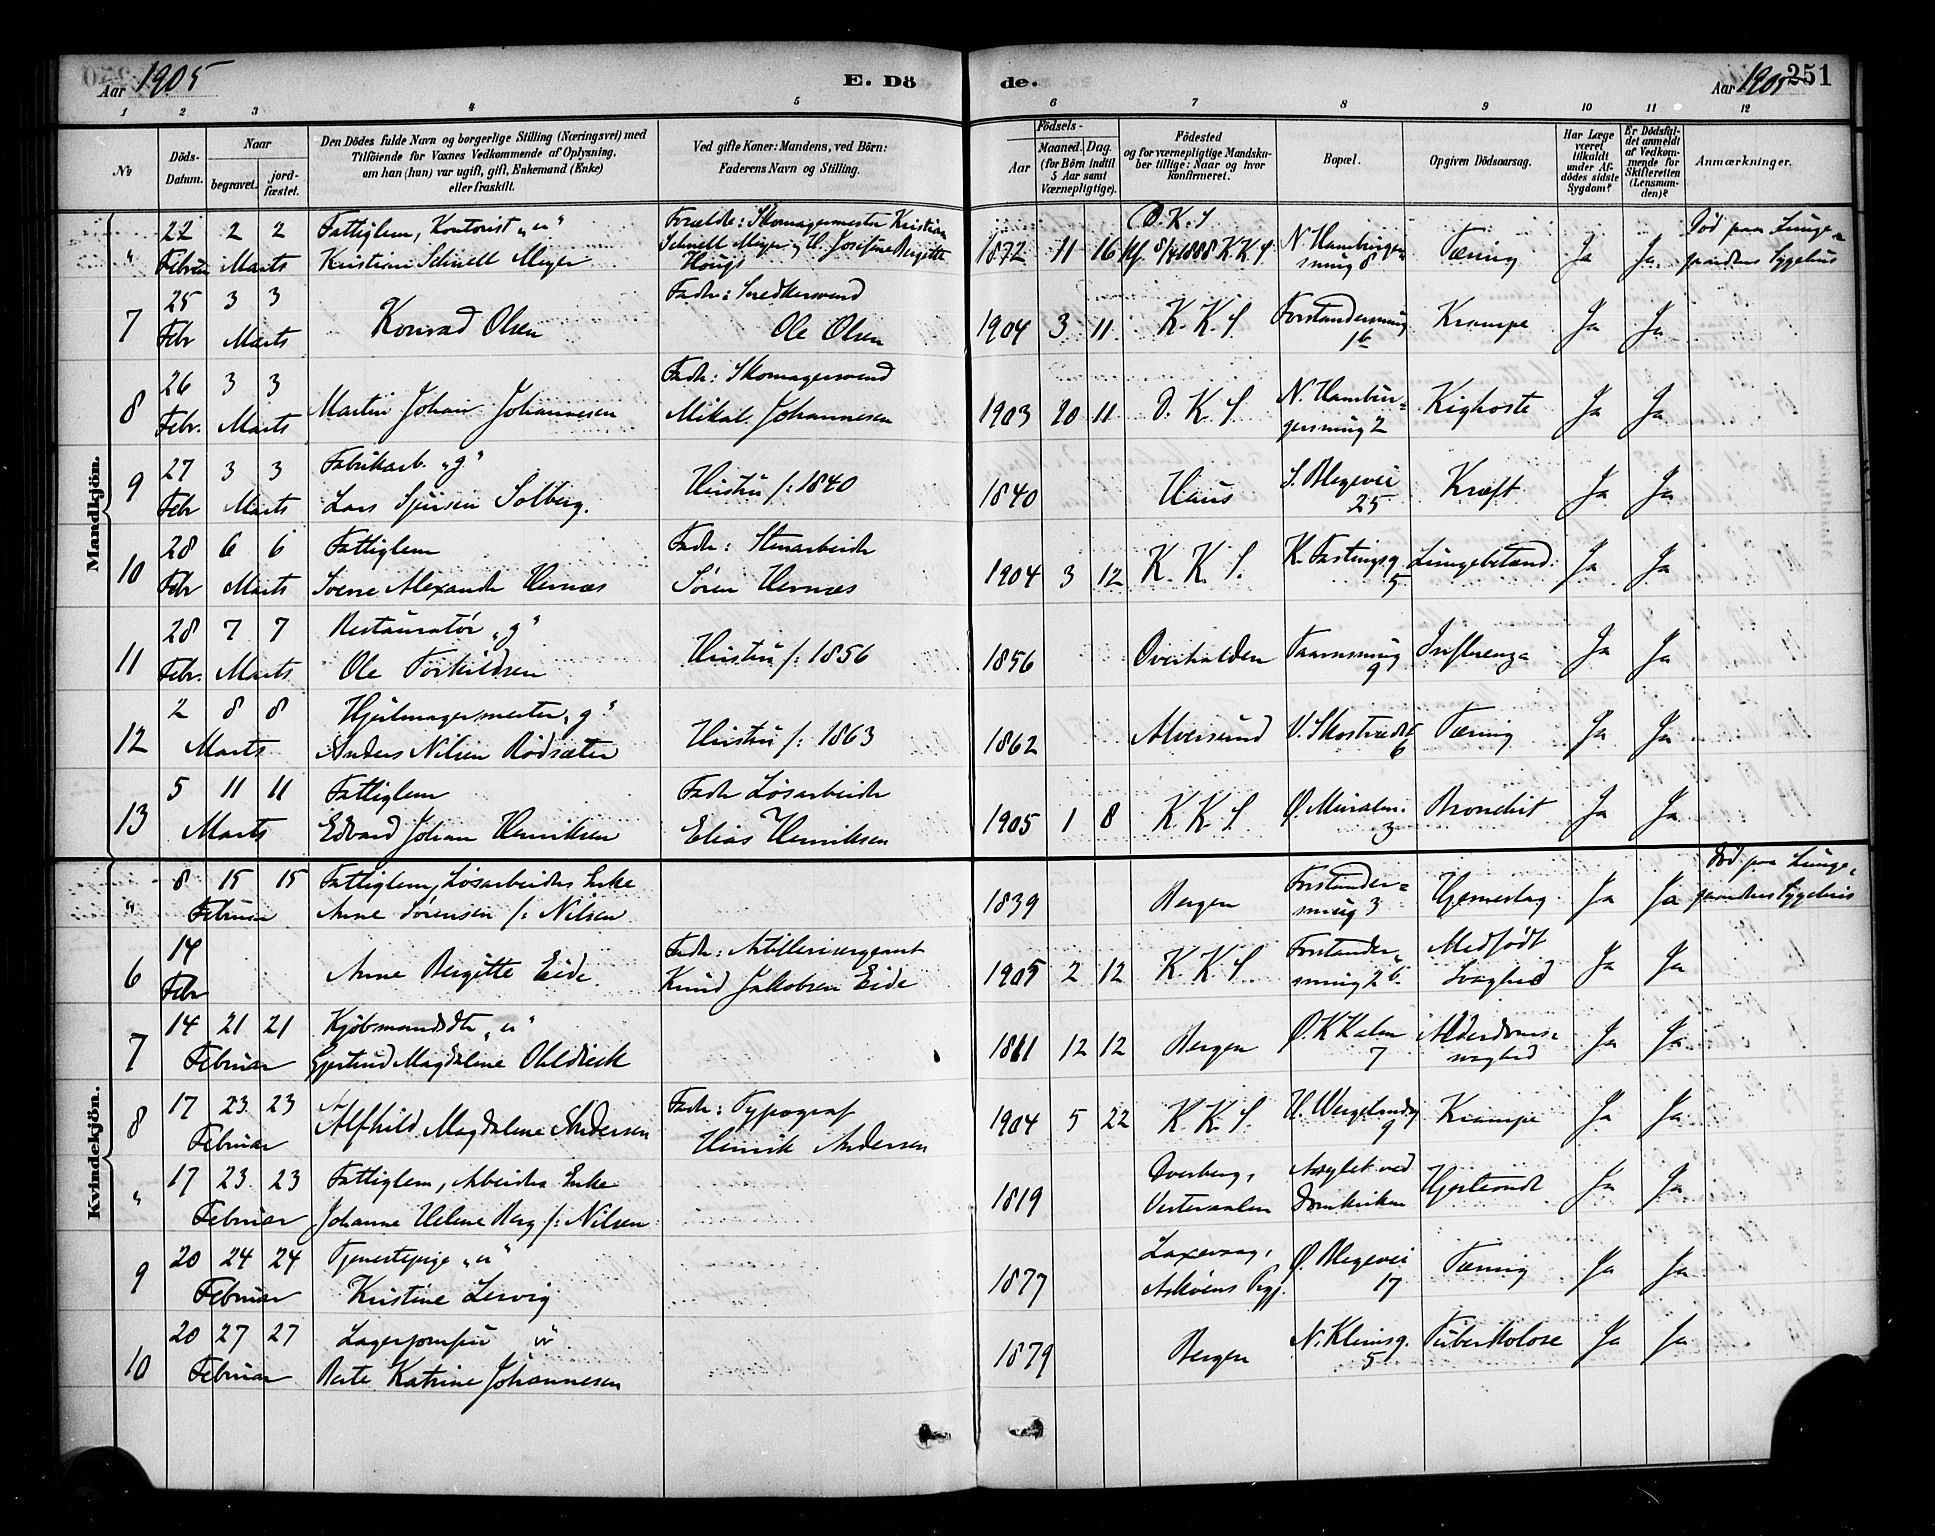 Aar 1905 E. Dö de. Aar 1905 251
1 2 3 4 5 6 7 8 9 10 11 12
№
Döds-Datum.
Naar begravet. jordfæstet.
Den Dödes fulde Navn og borgerlige Stilling (Næringsvei) med Tilföiende for Voxnes Vedkommende af Oplysning, om han (hun) var ugift, gift, Enkemand (Enke) eller fraskilt.
Ved gifte Koner: Mandens, ved Börn: Faderens Navn og Stilling.
Födsels- Aar Maaned. Dag. (for Börn indtil 5 Aar samt Værnepligtige).
Födested og for værnepligtige Mandskaber tillige: Naar og hvor konfirmeret.
Bopæl.
Opgiven Dödsaarsag.
Har Læge været tilkaldt under Afdödes sidste Sygdom?
Er Dödsfaldet anmeldt af Vedkommende for Skifteretten (Lensmanden)?
Anmærkninger.
Mandkjön.
" 22 2 2 Fattiglem, Kontorist „u" Forældre: Skomagermester Kristian D. K. S Død paa Lunge-
Februar Marts Kristian Schnell Meyer Schnell Meyer og H. Josefine Bergitte Houge 1872 11 16 Kf. 8/4 1888 K K S N Hamburgersmug 8 Tæring Ja Ja gaardens Sygehus
7 25 3 3 Fader: Snedkersvend
Febr Marts Konrad Olsen Ole Olsen 1904 3 11 K. K. S Forstandersmug 1b Krampe Ja Ja
8 26 3 3 Fader: Skomagersvend
Febr. Marts Martin Johan Johannesen Mikal Johannesen 1903 20 11 D. K. S N. Hamburgersmug 2 Kighoste Ja Ja
9 27 3 3 Fabrikarb. „g"
Febr Marts Lars Sjursen Solberg. Hustru f: 1840 1840 Haus S. Blegevei 25 Kræft Ja Ja
10 28 6 6 Fattiglem Fader: Stenarbeider
Febr Marts Sverre Alexander Hernæs Søren Hernæs 1904 3 12 K. K. S. K. Fastingsg 5 Lungebetænd. Ja Ja
11 28 7 7 Restauratør „g"
Febr. Marts Ole Torkildsen Hustru f: 1856 1856 Overhalden 9 Influenza Ja Ja
12 2 8 8 Hjulmagermester „g"
Marts Anders Nilsen Rødsæter Hustru f: 1863 1862 Alversund V. Skostrædet 6 Tæring Ja Ja
13 5 11 11 Fattiglem Fader Løsarbeider
Marts Edvard Johan Henriksen Elias Henriksen 1905 1 8 K K S Ø. Muralm. 3 Bronchit Ja Ja
Kvindekjön.
" 8 15 15 Fattiglem, Løsarbeiders Enke Død paa Lunge-
Februar Anne Sørensen f: Nilsen 1839 Bergen Forstandersmug 3 Hjerneslag Ja Ja gaardens Sygehus
6 14 Fader: Artillerisergeant Medfødt
Febr Anne Bergitte Eide Knud Jakobsen Eide 1905 2 12 K. K. S Forstandersmug 2b Svaghed Ja Ja
7 14 21 21 Kjøbmandsdtr „u"
Februar Gjertrud Magdalene Ohldieck 1811 12 12 Bergen Ø. K Kalm 7 Alderdomssvaghed Ja Ja
8 17 23 23 Fader: Typograf
Februar Alfhild Magdalene Andersen Henrik Andersen 1904 5 22 K. K. S. H. Wergelandsg 9 Krampe Ja Ja
" 17 23 23 Fattiglem, Arbeiders Enke Asylet ved
Februar Johanne Helene Berg f: Nilsen 1819 Vesteraalen Domkirken Hjerteondt Ja Ja
9 20 24 24 Tjenestepige „u"
Februar Kristine Lervig 1877 Laxevaag, Askøens Prgj. Ø. Blegevei 17 Tæring Ja Ja
10 20 27 27 Lagerjomfru u
Februar Berte Katrine Johannesen 1879 Bergen N. Klemsg. 5 Tuberkolose Ja Ja